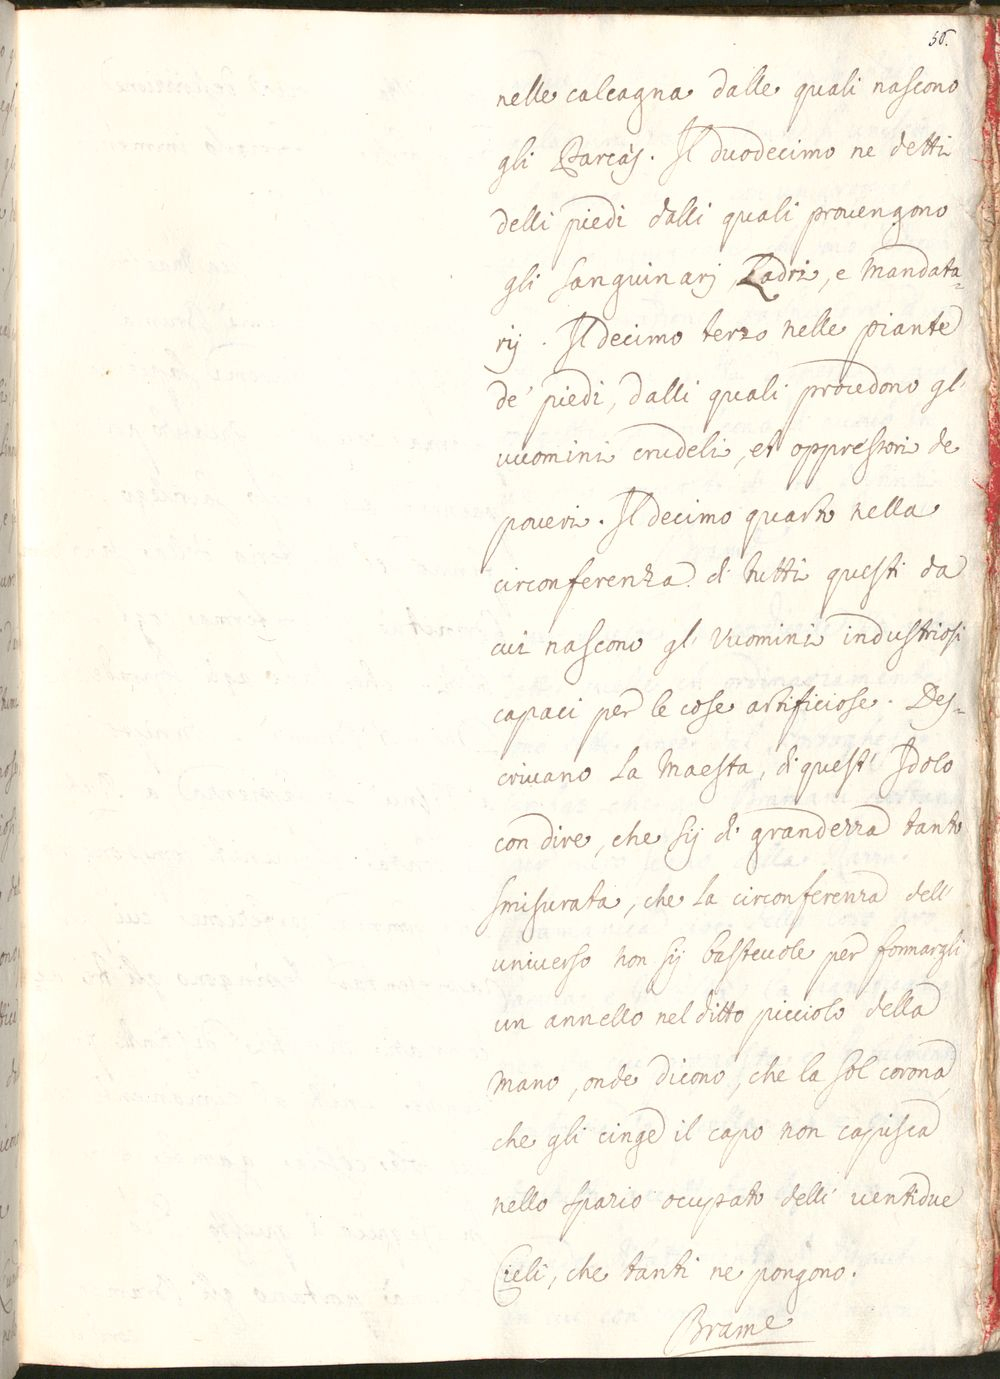 56.
nelle calcagna dalle quali nascono
gli Parcàs. Il duodecimo ne detti
delli piedi dalli quali prouengono
gli sanguinarj Ladri, e Mandata=
rij. Il decimo terzo nelle piante
de' piedi, dalli quali procedono gl'
vuomini crudeli, et oppressori de
poueri. Il decimo quarto nella
circonferenza di tutti questi da
cui nascono gl' Vuomini industriosi
capaci per le cose artificiose. Des=
criuano la Maesta, di quest' Idolo
con dire, che sij di grandezza tanto
smisurata, che la circonferenza dell'
vniuerso non sij basteuole per formargli
un annello nel ditto picciolo della
mano, onde dicono, che la sol corona,
che gli cinge il capo non capisca
nello spazio occupato delli uentidue
Cieli, che tanti ne pongono.
Brame